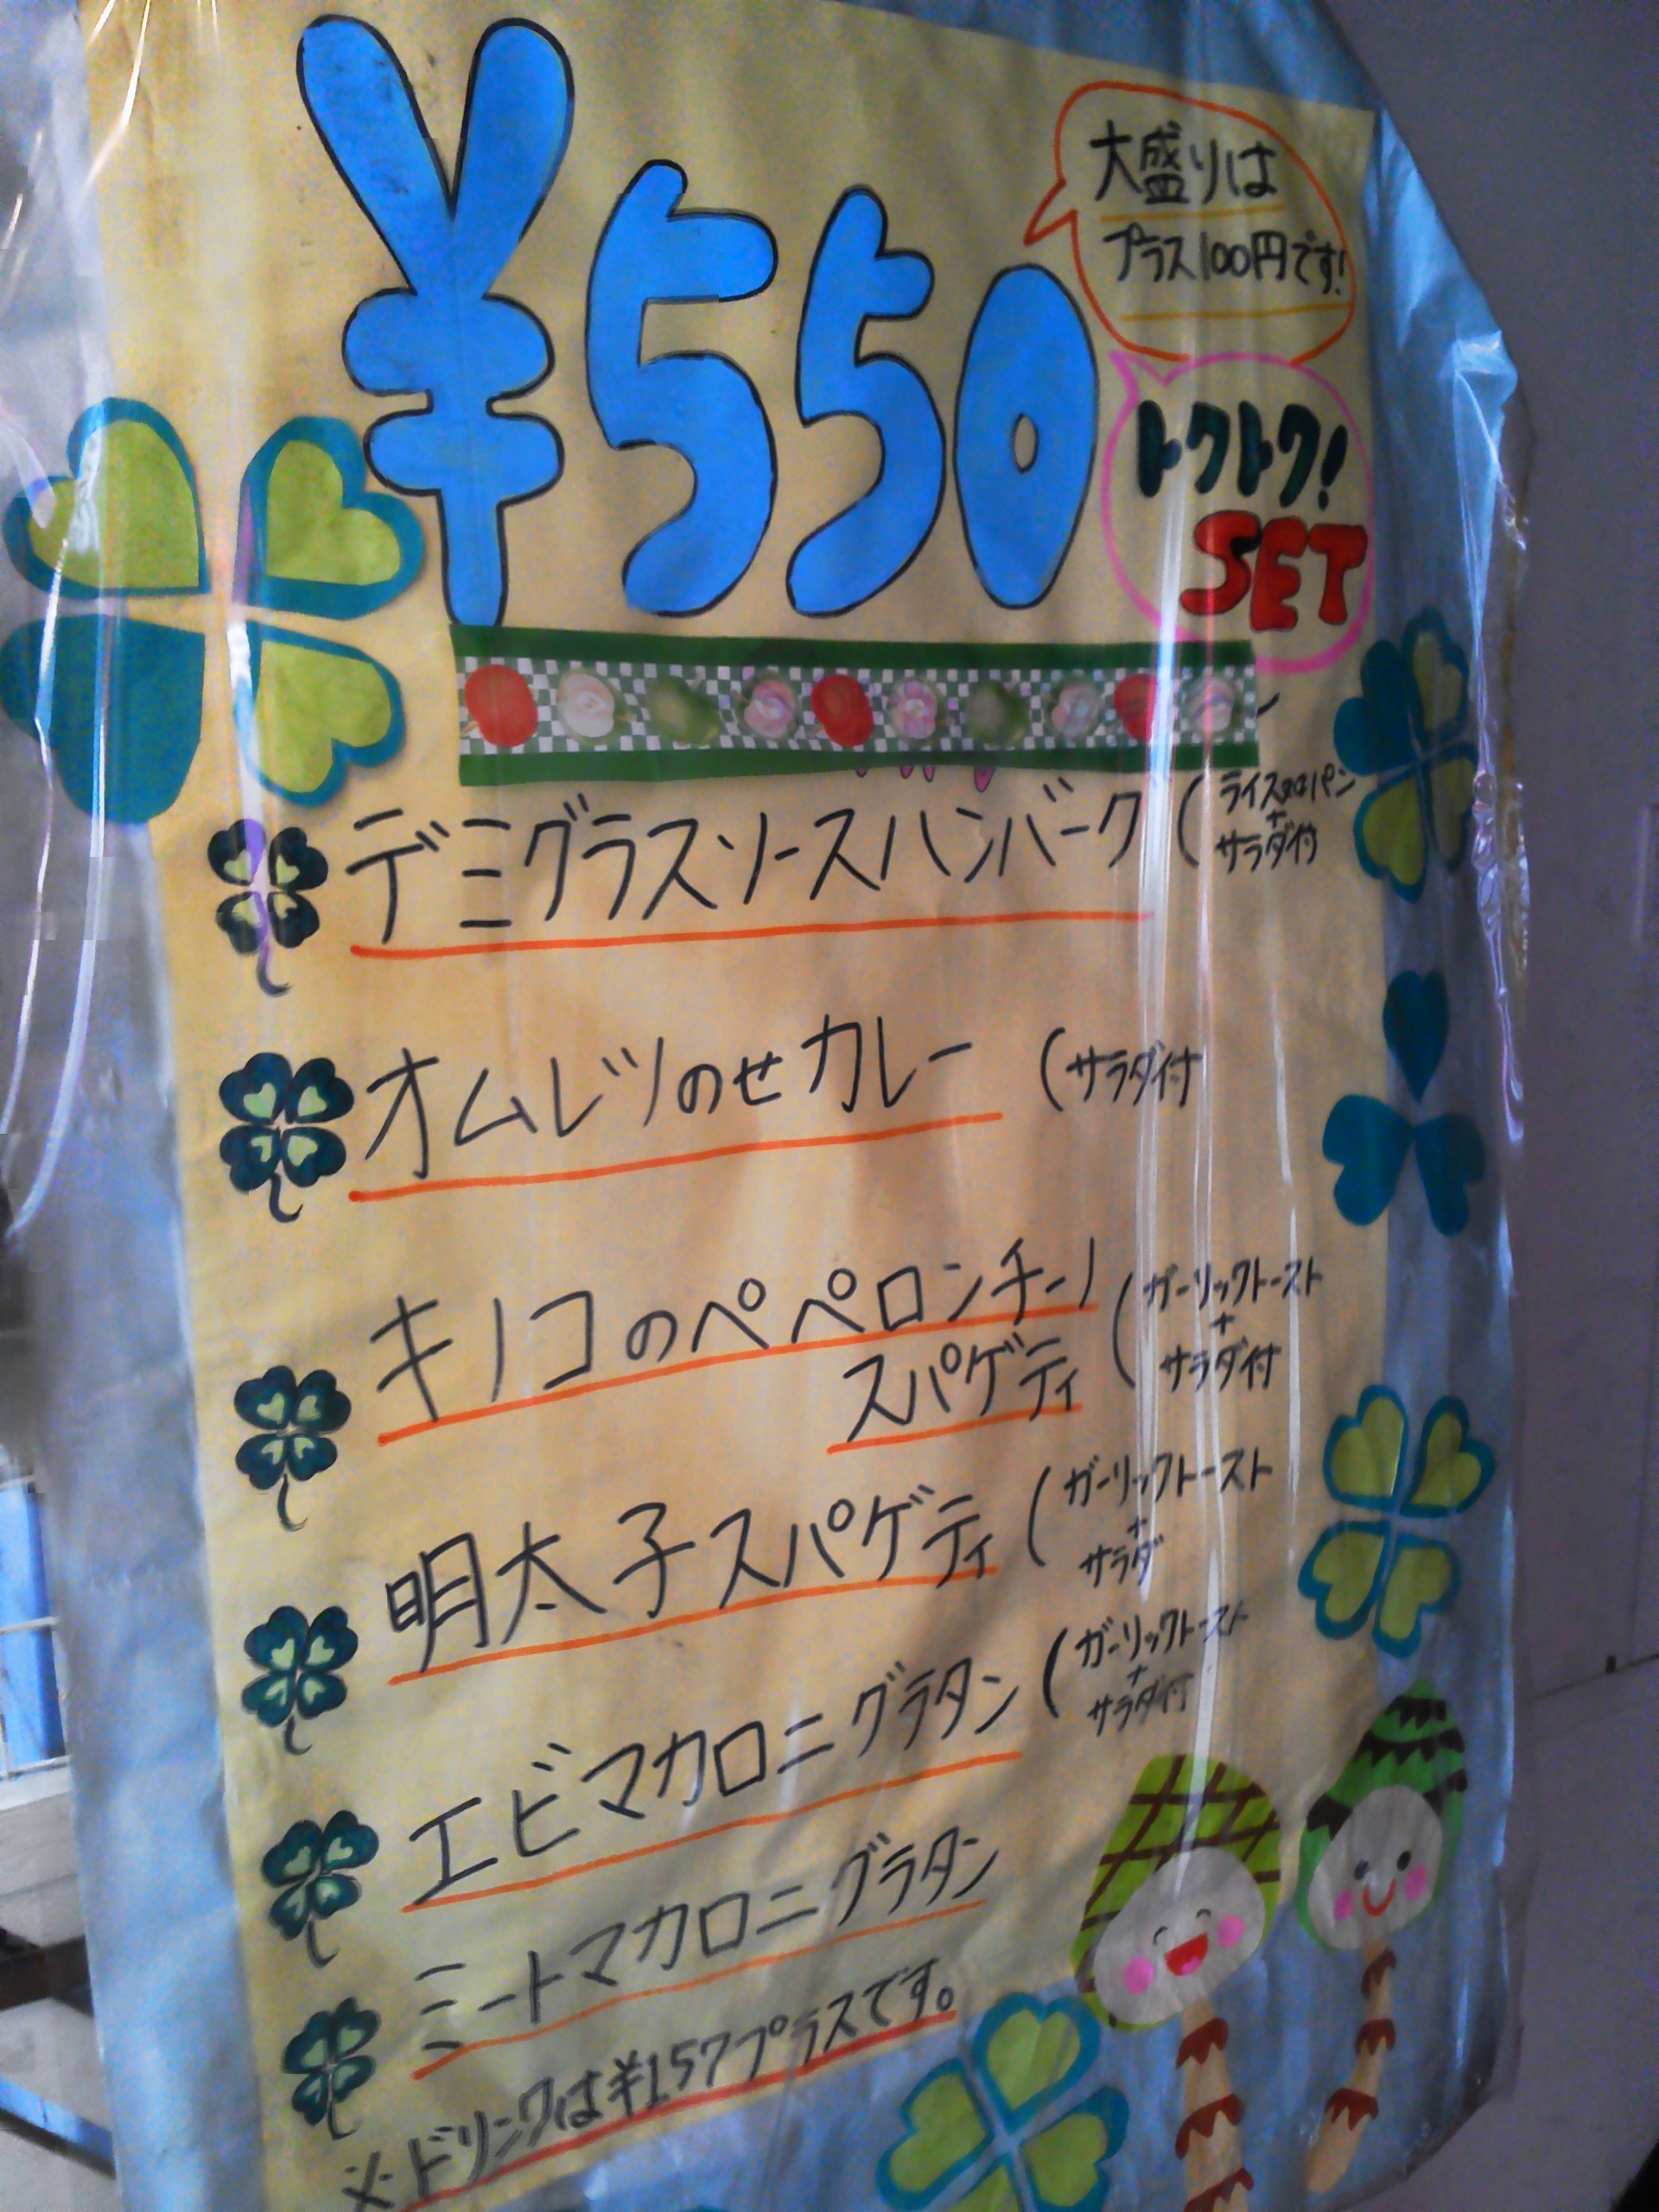 ¥550
大盛りは
プラス100円です!
トクトク!
SET
デミグラスソースハンバーグ(ライスorパン
+
サラダ付
オムレツのせカレー (サラダ付
キノコのペペロンチーノ
スパゲティ
(ガーリックトースト
+
サラダ付
明太子スパゲティ(ガーリックトースト
+
サラダ
エビマカロニグラタン(ガーリックトースト
+
サラダ付
ミートマカロニグラタン
※ドリンクは¥157プラスです。